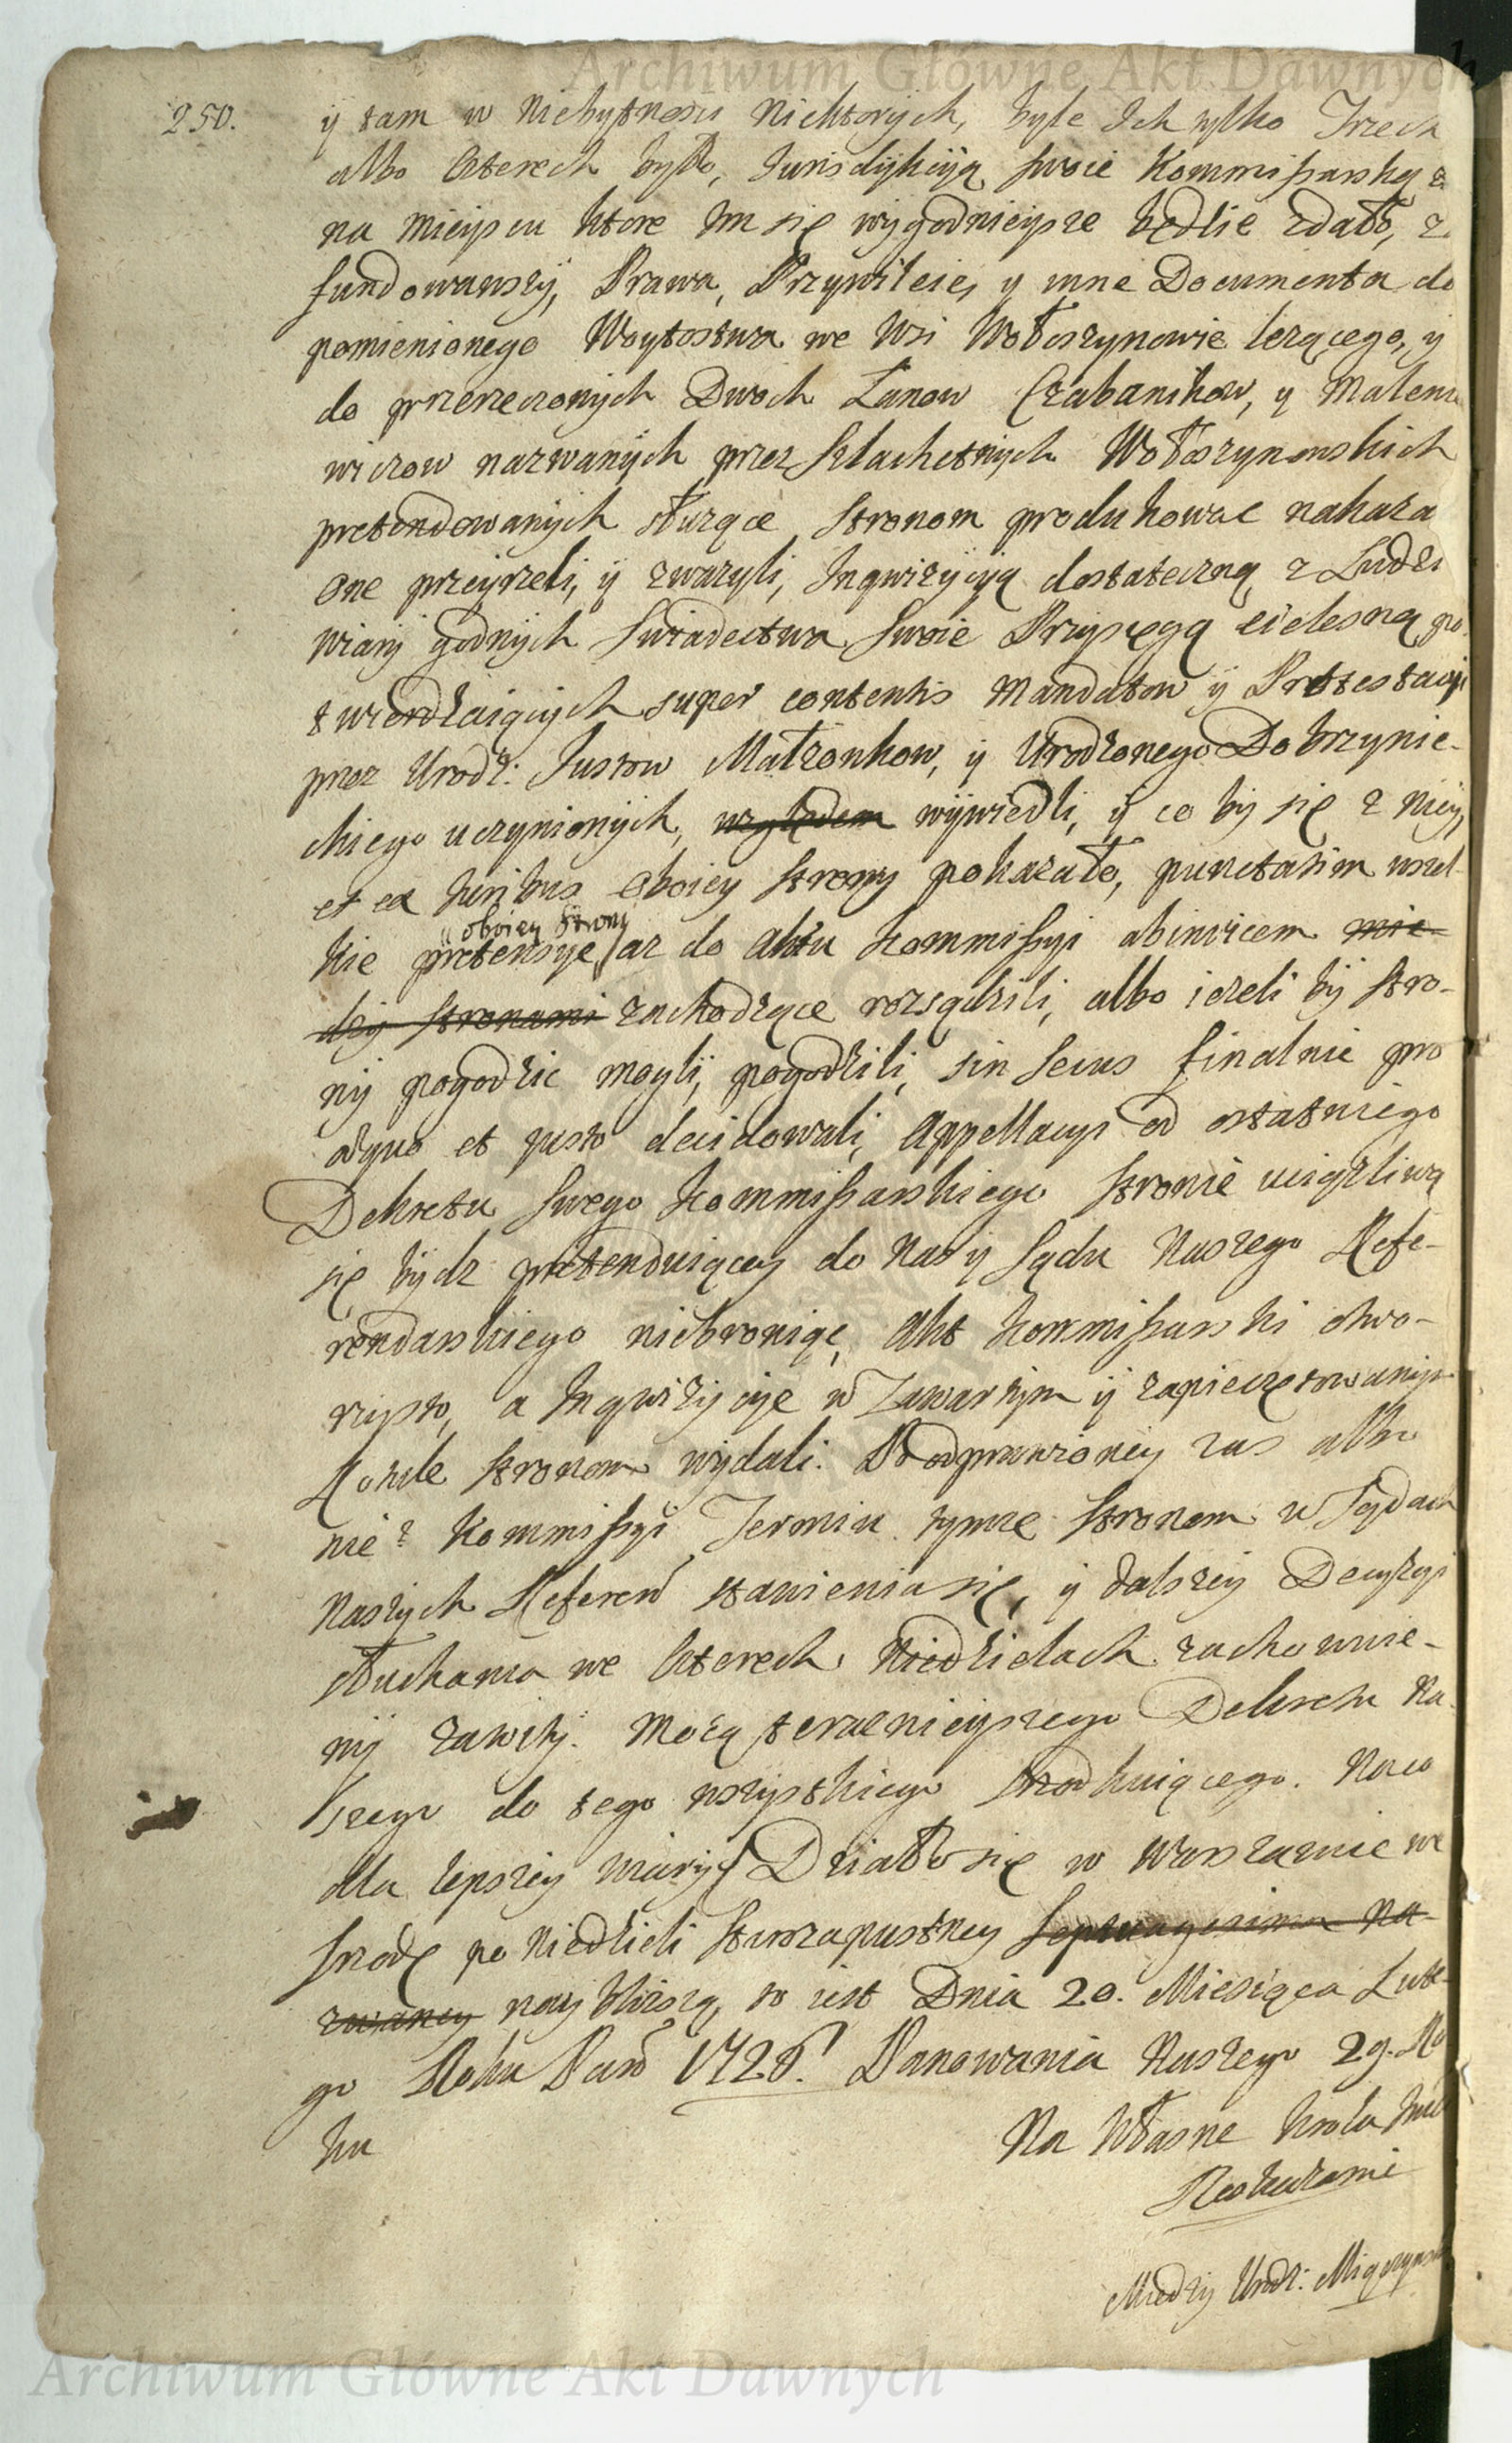 Archiwum Główne Akt Dawnych
250.
y tam w niebytnosci niektorych, byle Ich tylko Trzech
albo Czterech było, Jurisdykcyą swoie Kommissarską
na mieyscu ktore Im się wygodnieysze będzie zdało, 
fundowawszy, Prawa, Przywileie, y inne Documenta do
pomienionego Woytostwa we Wsi Wołoszynowie lezącego, y
do przerzeczonych Dwoch Łanow Czabanikow, y Malem
wiczow nazwanych przez Szlachetnych Wołoszynowskich
pretendowanych służące stronom produkować nakaza
one przeyrzeli, y zwazyli, Inqwizycyą dostateczną z Ludzi
wiary godnych swiadectwa swoie Przysięgą cielesną po
twierdzaiących super contentis Mandatow y Protestacyi
przez Urodz: Justow Małzonkow, y Urodzonego Dobrzynie-
ckiego uczynionych, względem wywiedli, y co by się z niey,
et ex Juribus oboiey strony pokazało, punctatim wszel-
oboiey strony
kie pretensye az do Aktu Kommissyi abinvicem mie-
dzy stronami zachodzące rozsądzili, albo iezeli by stro-
ny pogodzic mogli, pogodzili, sin secus finalnie pro
æquo et justo decidowali, Appellacyi od ostatniego
Dekretu swego Kommissarskiego stronie uciązliwą
się bydz pretenduiącey do Nas y Sądu Naszego Refe-
rendarskiego niebroniąc, Akt Kommissarski otwo-
rzysto, a Inqwizycye w Zawartym y zapieczętowanym
Rotule stronom wydali. Po odprawioney zas albo
nie? Kommissyi Termin tymze stronom w Sądach
Naszych Referen stawienia się, y dalszey Decyzyi
słuchania we Czterech Niedzielach zachowuie-
my zawity. Mocą teraznieyszego Dekretu Na-
szego do tego wszystkiego srzodkuiącego. Na co
dla lepszey wiary Działo się w Warszawie we
srzodę po Niedzieli Starozapustney Septuagesima na-
zwaney nayblizszą, to iest Dnia 20. Miesiąca Lute-
go Roku Pans 1726. Panowania Naszego 29. Ro
ku
Na Własne Krola Jmci
Rozkazanie
Miedzy Urodz: Miączyns
Archiwum Główne Akt Dawnych